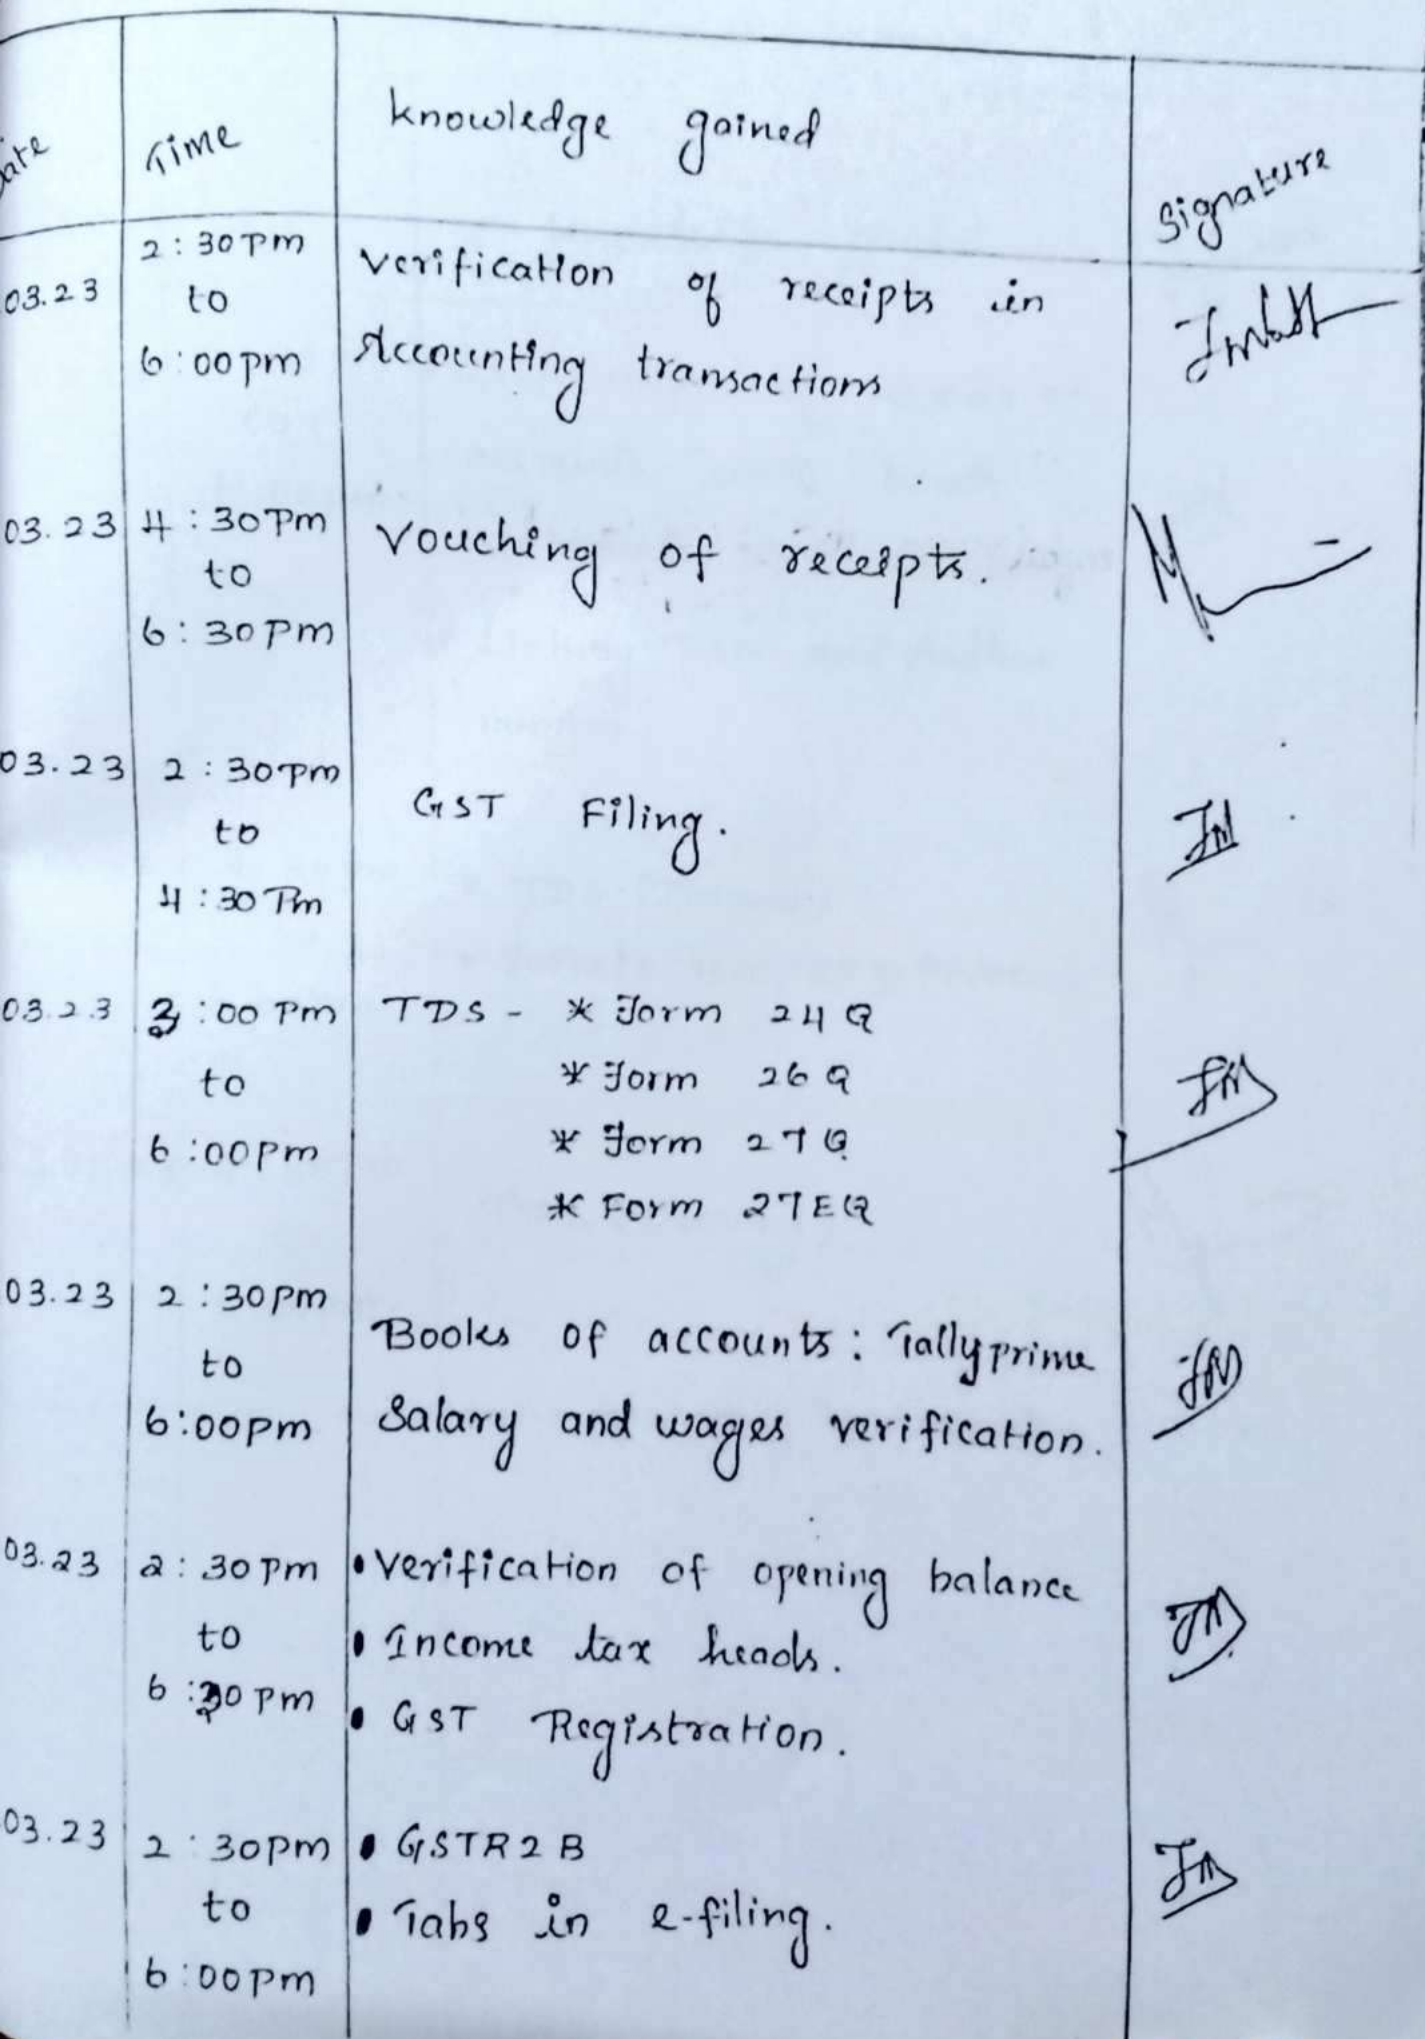 Date Time knowledge gained Signature
03.23 2:30pm to 6:00pm
verification of receipts in
Accounting transactions
03.23 4:30pm to 6:30pm
Vouching of receipts.
03.23 2:30pm to 4:30Pm
GST Filing.
03.23 3:00 Pm to 6:00pm
TDS - * Form 24Q
* Form 26Q
* Form 27Q
* Form 27EQ
03.23 2:30pm to 6:00pm
Books of accounts: Tallyprime
Salary and wages verification.
03.23 2:30pm to 6:30pm
• Verification of opening balance
• Income tax heads.
• GST Registration.
03.23 2:30pm to 6:00pm
• GSTR2B
• Tabs in e-filing.